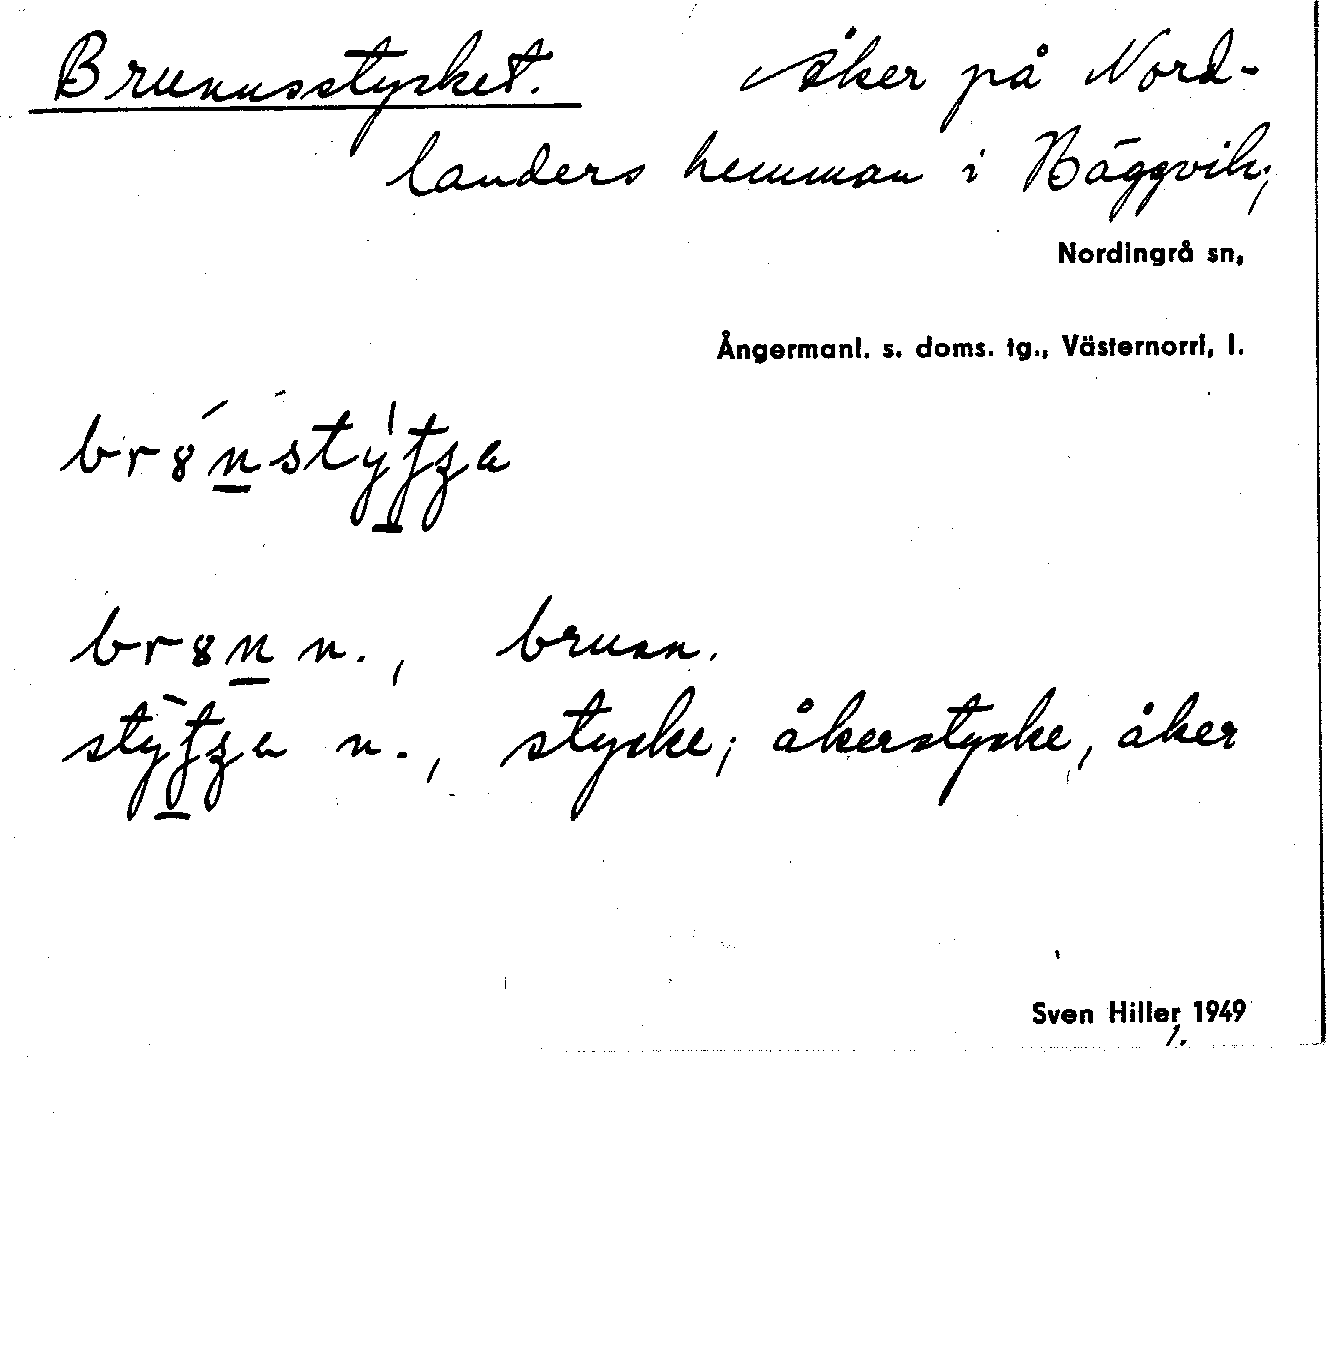 Brunnsstycket. Åker på Nord-
landers hemman i Bäggvik;
Nordingrå sn,
Ångermanl. s. doms. tg., Västernorrl. l.
n., brunn.
n., stycke; åkerstycke, åker
Sven Hiller 1949